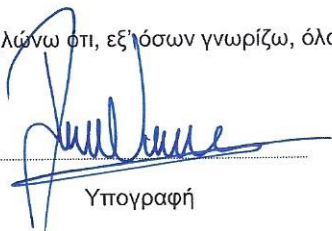 λώνω ότι, εξ' όσων γνωρίζω,
Υπογραφή